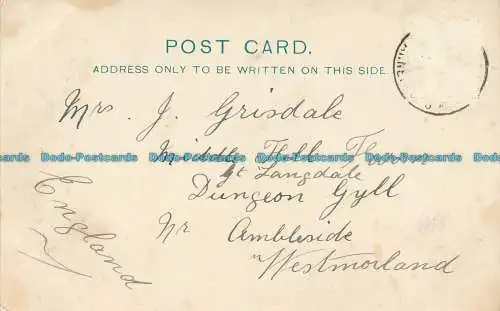 POST CARD.
ADDRESS ONLY TO BE WRITTEN ON THIS SIDE.
Mrs. J. Grisdale
Middle Fell
Gt Langdale
Dungeon Gyll
Nr Ambleside
Westmorland
England
Dodo-Postcards Dodo-Postcards Dodo-Postcards Dodo-Postcards Dodo-Postcards